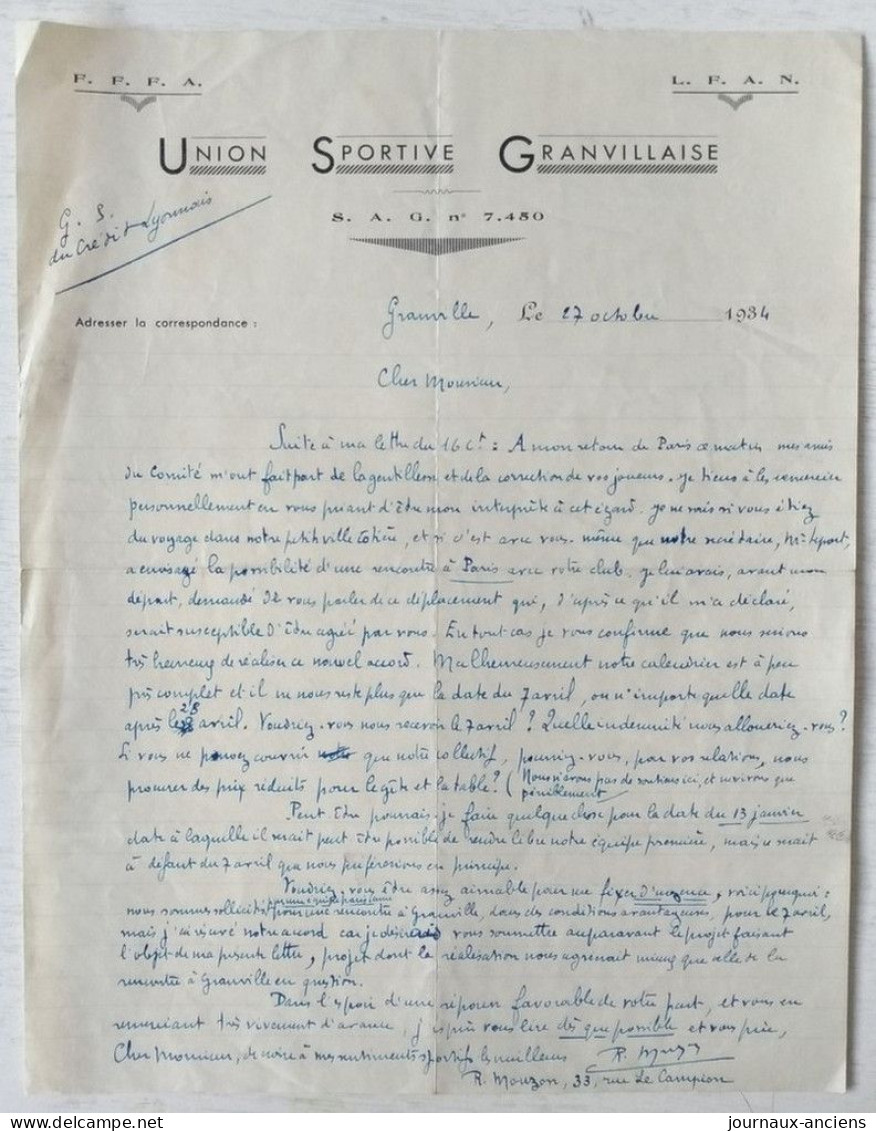 F. F. F. A.
L. F. A. N.
UNION SPORTIVE GRANVILLAISE
S. A. G. n° 7.450
G. S.
du Crédit Lyonnais
Adresser la correspondance :
Granville, Le 27 octobre 1934
Cher Monsieur,
Suite à ma lettre du 16 Ct : A mon retour de Paris ce matin mes amis
du Comité m'ont fait part de la gentillesse et de la correction de vos joueurs. Je tiens à les remercier
personnellement en vous priant d'être mon interprète à cet égard. Je ne sais si vous étiez
du voyage dans notre petite ville côtière, et si c'est avec vous-même que notre secrétaire, Mr
a envisagé la possibilité d'une rencontre à Paris avec votre club. Je lui avais, avant mon
départ, demandé de vous parler de ce déplacement qui, d'après ce qu'il m'a déclaré,
serait susceptible d'être agréé par vous. En tout cas je vous confirme que nous serions
très heureux de réaliser ce nouvel accord. Malheureusement notre calendrier est à peu
près complet et il ne nous reste plus que la date du 7 avril, ou n'importe quelle date
après le 28 avril. Voudriez-vous nous recevoir le 7 avril ? Quelle indemnité nous alloueriez-vous ?
Si vous ne pouvez couvrir que notre collectif, pourriez-vous, par vos relations, nous
procurer des prix réduits pour le gîte et la table ? (Nous n'avons pas de soutiens ici, et ne vivons que
péniblement
Peut être pourrais-je faire quelque chose pour la date du 13 janvier
date à laquelle il serait peut être possible de rendre libre notre équipe première, mais ce serait
à défaut du 7 avril que nous préférerions en principe.
Voudriez-vous être assez aimable pour me fixer d'urgence, voici pourquoi :
par une équipe parisienne
nous sommes sollicités pour une rencontre à Granville, dans des conditions avantageuses, pour le 7 avril,
mais j'ai réservé notre accord car je désirais vous soumettre auparavant le projet faisant
l'objet de ma présente lettre, projet dont la réalisation nous agréerait mieux que celle de la
rencontre à Granville en question.
Dans l'espoir d'une réponse favorable de votre part, et vous en
remerciant très vivement d'avance, j'espère vous lire dès que possible et vous prie,
Cher Monsieur, de croire à mes sentiments sportifs les meilleurs
R. Mouzon, 33, rue Le Campion
journaux-anciens
Delcampe.net